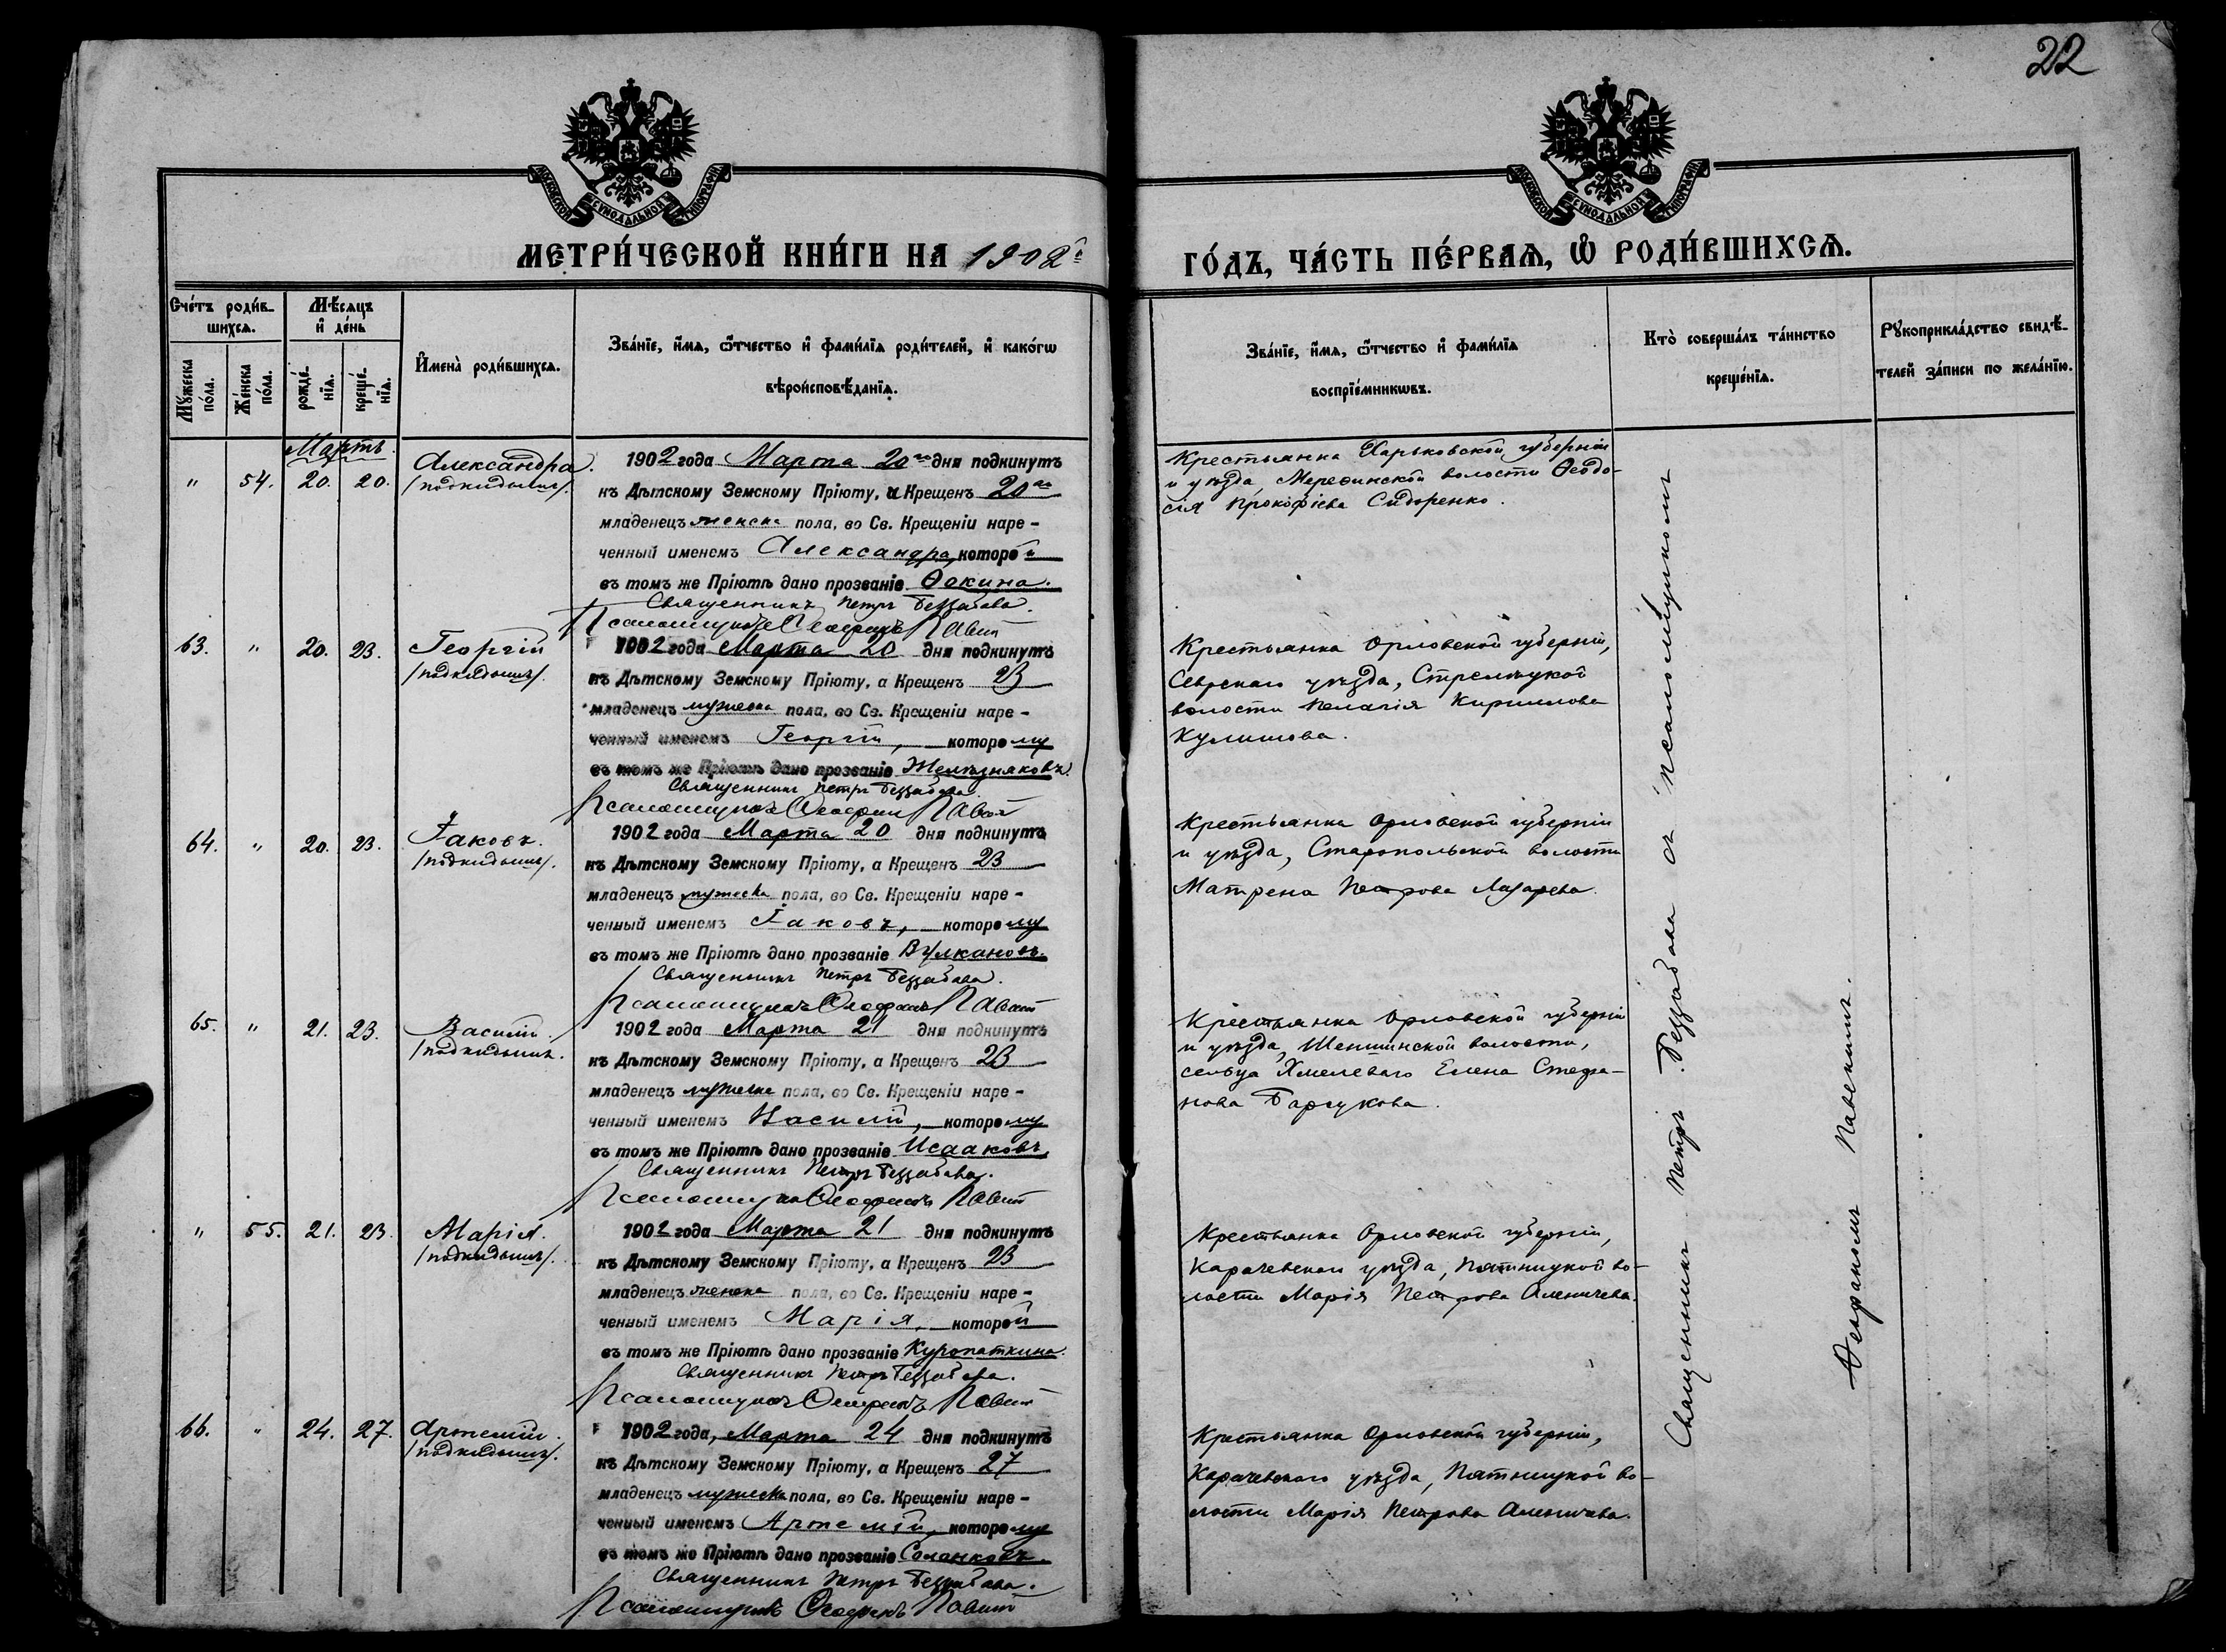 22
МОСКОВСКОЙ СѴНОДАЛЬНОЙ ТИПОГРАФІИ
МОСКОВСКОЙ СѴНОДАЛЬНОЙ ТИПОГРАФІИ
МЕТРИ́ЧЕСКОЙ КНИ́ГИ НА 1902й
ГО́ДЪ, ЧА́СТЬ ПЕ́РВАѦ, Ѡ РОДИ́ВШИХСѦ.
Сче́тъ роди́в-
шихсѧ.
Мꙋ́жеска по́ла.
Же́нска по́ла.
Мѣ́сѧцъ
и҆ де́нь
рожде́-
нїѧ.
креще́-
нїѧ.
И҆мена̀ роди́вшихсѧ.
Зва́нїе, и҆́мѧ, ѻ҆́тчество и҆ фами́лїѧ роди́телей, и҆ како́гѡ
вѣроисповѣ́данїѧ.
Зва́нїе, и҆́мѧ, ѻ҆́тчество и҆ фами́лїѧ
воспрїе́мникѡвъ.
Кто̀ соверша́лъ та́инство
креще́нїѧ.
Рꙋкоприкла́дство свидѣ́-
телей за́писи по жела́нїю.
Мартъ.
" 54. 20. 20.
Александра.
/подкидышъ/.
1902 года Марта 20го дня подкинутъ
къ Дѣтскому Земскому Пріюту, и Крещенъ 20го
младенецъ женска пола, во Св. Крещеніи наре-
ченный именемъ Александра, которой
въ томъ же Пріютѣ дано прозваніе Ѳокина.
Священникъ Петръ Беззабава.
Псаломщикъ Ѳеофанъ
Крестьянка Харьковской губерніи
и уѣзда, Мерефинской волости Ѳеодо-
сія Прокофіева Сидоренко.
63. " 20. 23.
Георгій
/подкидышъ/.
1902 года Марта 20 дня подкинутъ
къ Дѣтскому Земскому Пріюту, а Крещенъ 23
младенецъ мужеска пола, во Св. Крещеніи наре-
ченный именемъ Георгій, которому
въ томъ же Пріютѣ дано прозваніе Желѣзняковъ.
Священникъ Петръ Беззабава.
Псаломщикъ Ѳеофанъ
Крестьянка Орловской губерніи,
Севскаго уѣзда, Стрелецкой
волости Пелагія Кириллова
Кулешова.
64. " 20. 23.
Іаковъ.
/подкидышъ/.
1902 года Марта 20 дня подкинутъ
къ Дѣтскому Земскому Пріюту, а Крещенъ 23
младенецъ мужеска пола, во Св. Крещеніи наре-
ченный именемъ Іаковъ, которому
въ томъ же Пріютѣ дано прозваніе Вулкановъ.
Священникъ Петръ Беззабава.
Псаломщикъ Ѳеофанъ
Крестьянка Орловской губерніи
и уѣзда, Старопольской волости
Матрена Петрова Лазарева.
65. " 21. 23.
Василій.
/подкидышъ.
1902 года Марта 21 дня подкинутъ
къ Дѣтскому Земскому Пріюту, а Крещенъ 23
младенецъ мужеска пола, во Св. Крещеніи наре-
ченный именемъ Василій, которому
въ томъ же Пріютѣ дано прозваніе Исааковъ.
Священникъ Петръ Беззабава.
Псаломщикъ Ѳеофанъ
Крестьянка Орловской губерніи
и уѣзда, Шеншинской волости,
сельца Хмелеваго Елена Стефа-
нова Барсукова.
" 55. 21. 23.
Марія.
/подкидышъ/.
1902 года Марта 21 дня подкинутъ
къ Дѣтскому Земскому Пріюту, а Крещенъ 23
младенецъ женска пола, во Св. Крещеніи наре-
ченный именемъ Марія, которой
въ томъ же Пріютѣ дано прозваніе Куропаткина.
Священникъ Петръ Беззабава.
Псаломщикъ Ѳеофанъ
Крестьянка Орловской губерніи,
Карачевскаго уѣзда, Пятницкой во-
лости Марія Петрова Аленичева.
66. " 24. 27.
Артемій.
/подкидышъ/.
1902 года, Марта 24 дня подкинутъ
къ Дѣтскому Земскому Пріюту, а Крещенъ 27
младенецъ мужеска пола, во Св. Крещеніи наре-
ченный именемъ Артемій, которому
въ томъ же Пріютѣ дано прозваніе
Священникъ Петръ Беззабава.
Псаломщикъ Ѳеофанъ
Крестьянка Орловской губерніи,
Карачевскаго уѣзда, Пятницкой во-
лости Марія Петрова Аленичева.
Священникъ Петръ Беззабава съ псаломщикомъ
Ѳеофаномъ